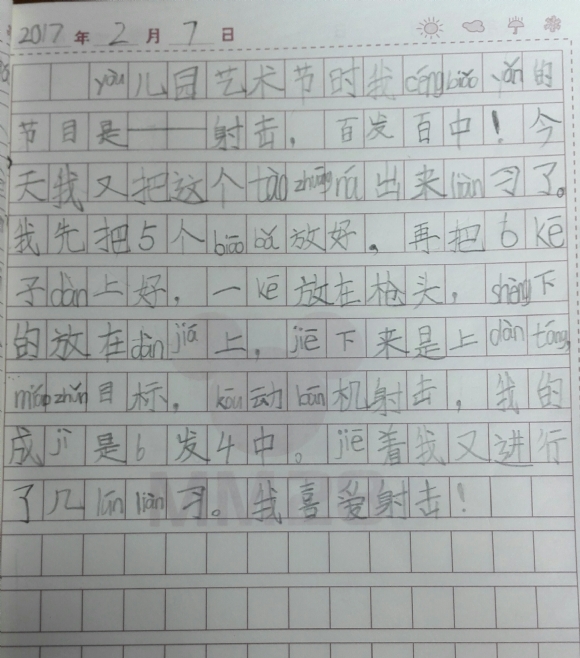 2017 年 2 月 7 日
yòu 儿园艺术节时我 céng biǎo yǎn 的
节目是——射击，百发百中！今
天我又把这个 tào zhuāng ná 出来 liàn 习了。
我先把5个 biāo bǎ 放好。再把6 kē
子 dàn 上好，一 kē 放在枪头，shèng 下
的放在 dàn jiā 上，jiē 下来是上 dàn tǒng,
miáo zhǔn 目标，kòu 动 bān 机射击，我的
成 jì 是6发4中。jiē 着我又进行
了几 lún liàn 习。我喜爱射击！